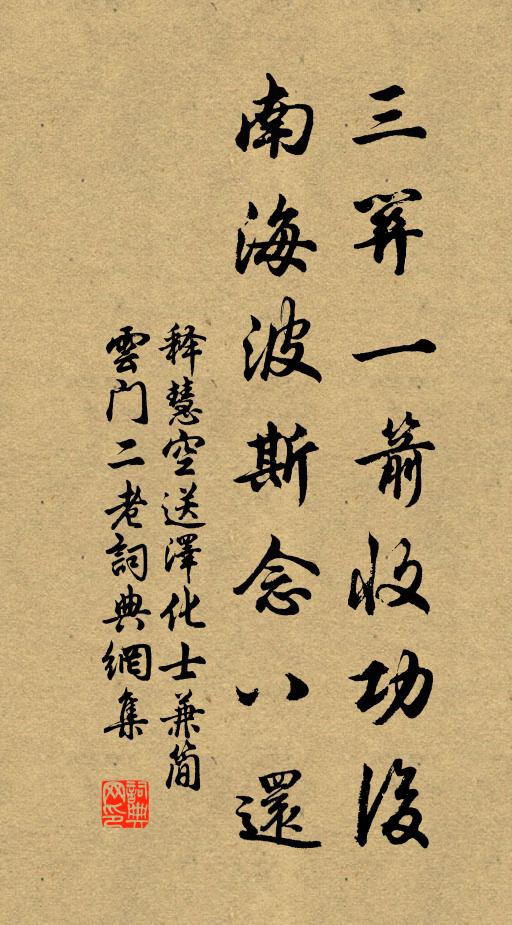 三關一箭收功後
南海波斯念八還
释慧空送澤化士兼简
雲门二老詞典網集
詞典
网印